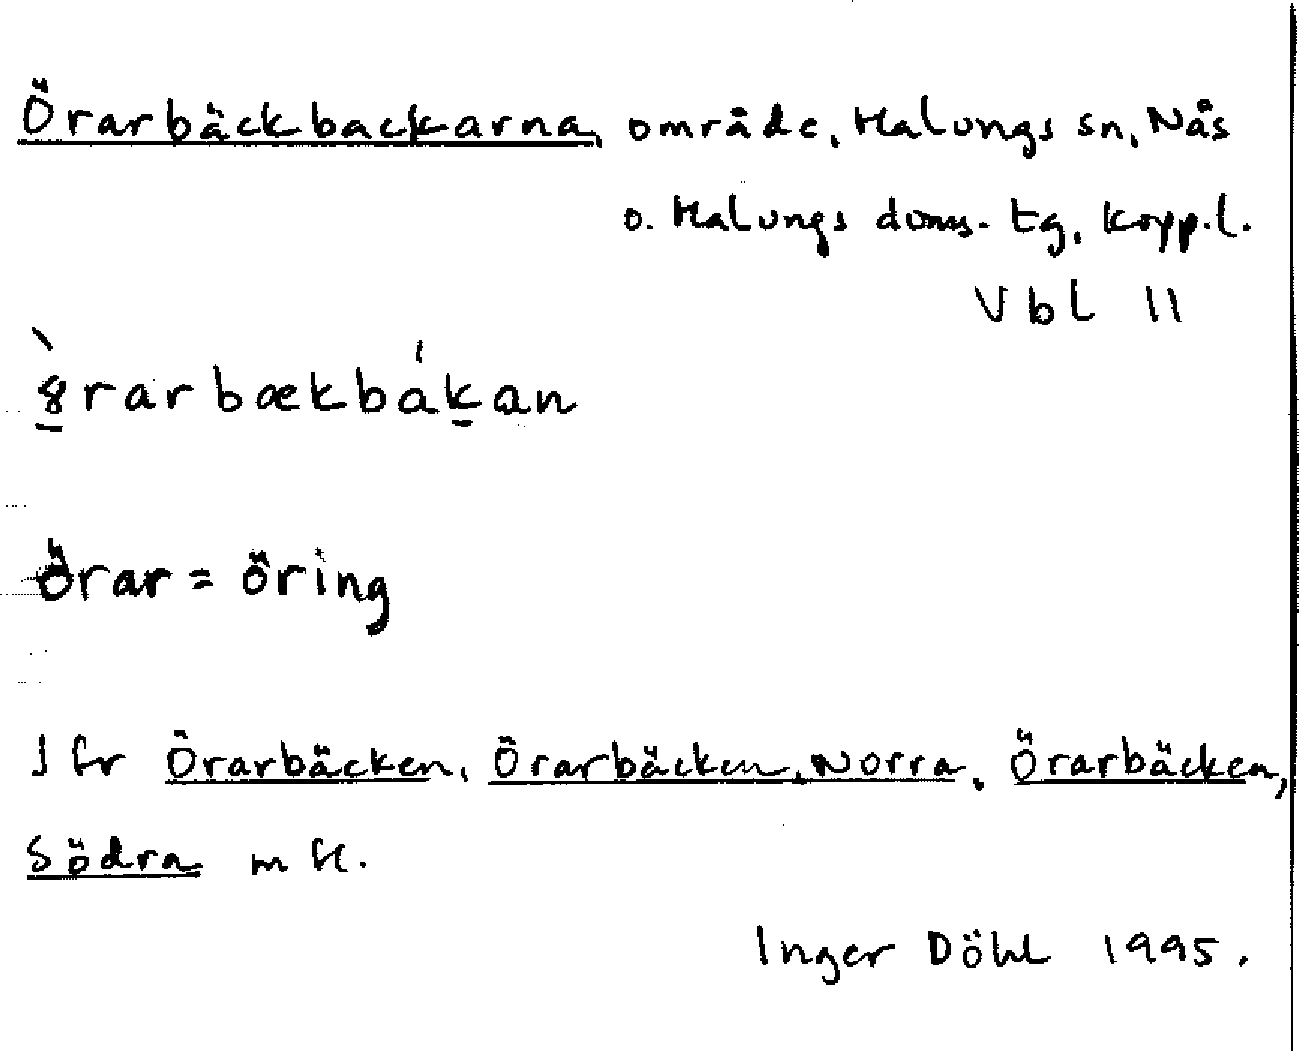 Örarbäckbackarna, område, Malungs sn, Nås
o. Malungs doms. tg, Kopp.l.
Vbl 11
örar = öring
Jfr Örarbäcken, Örarbäcken, Norra, Örarbäcken,
Södra m fl.
Inger Döhl 1995.